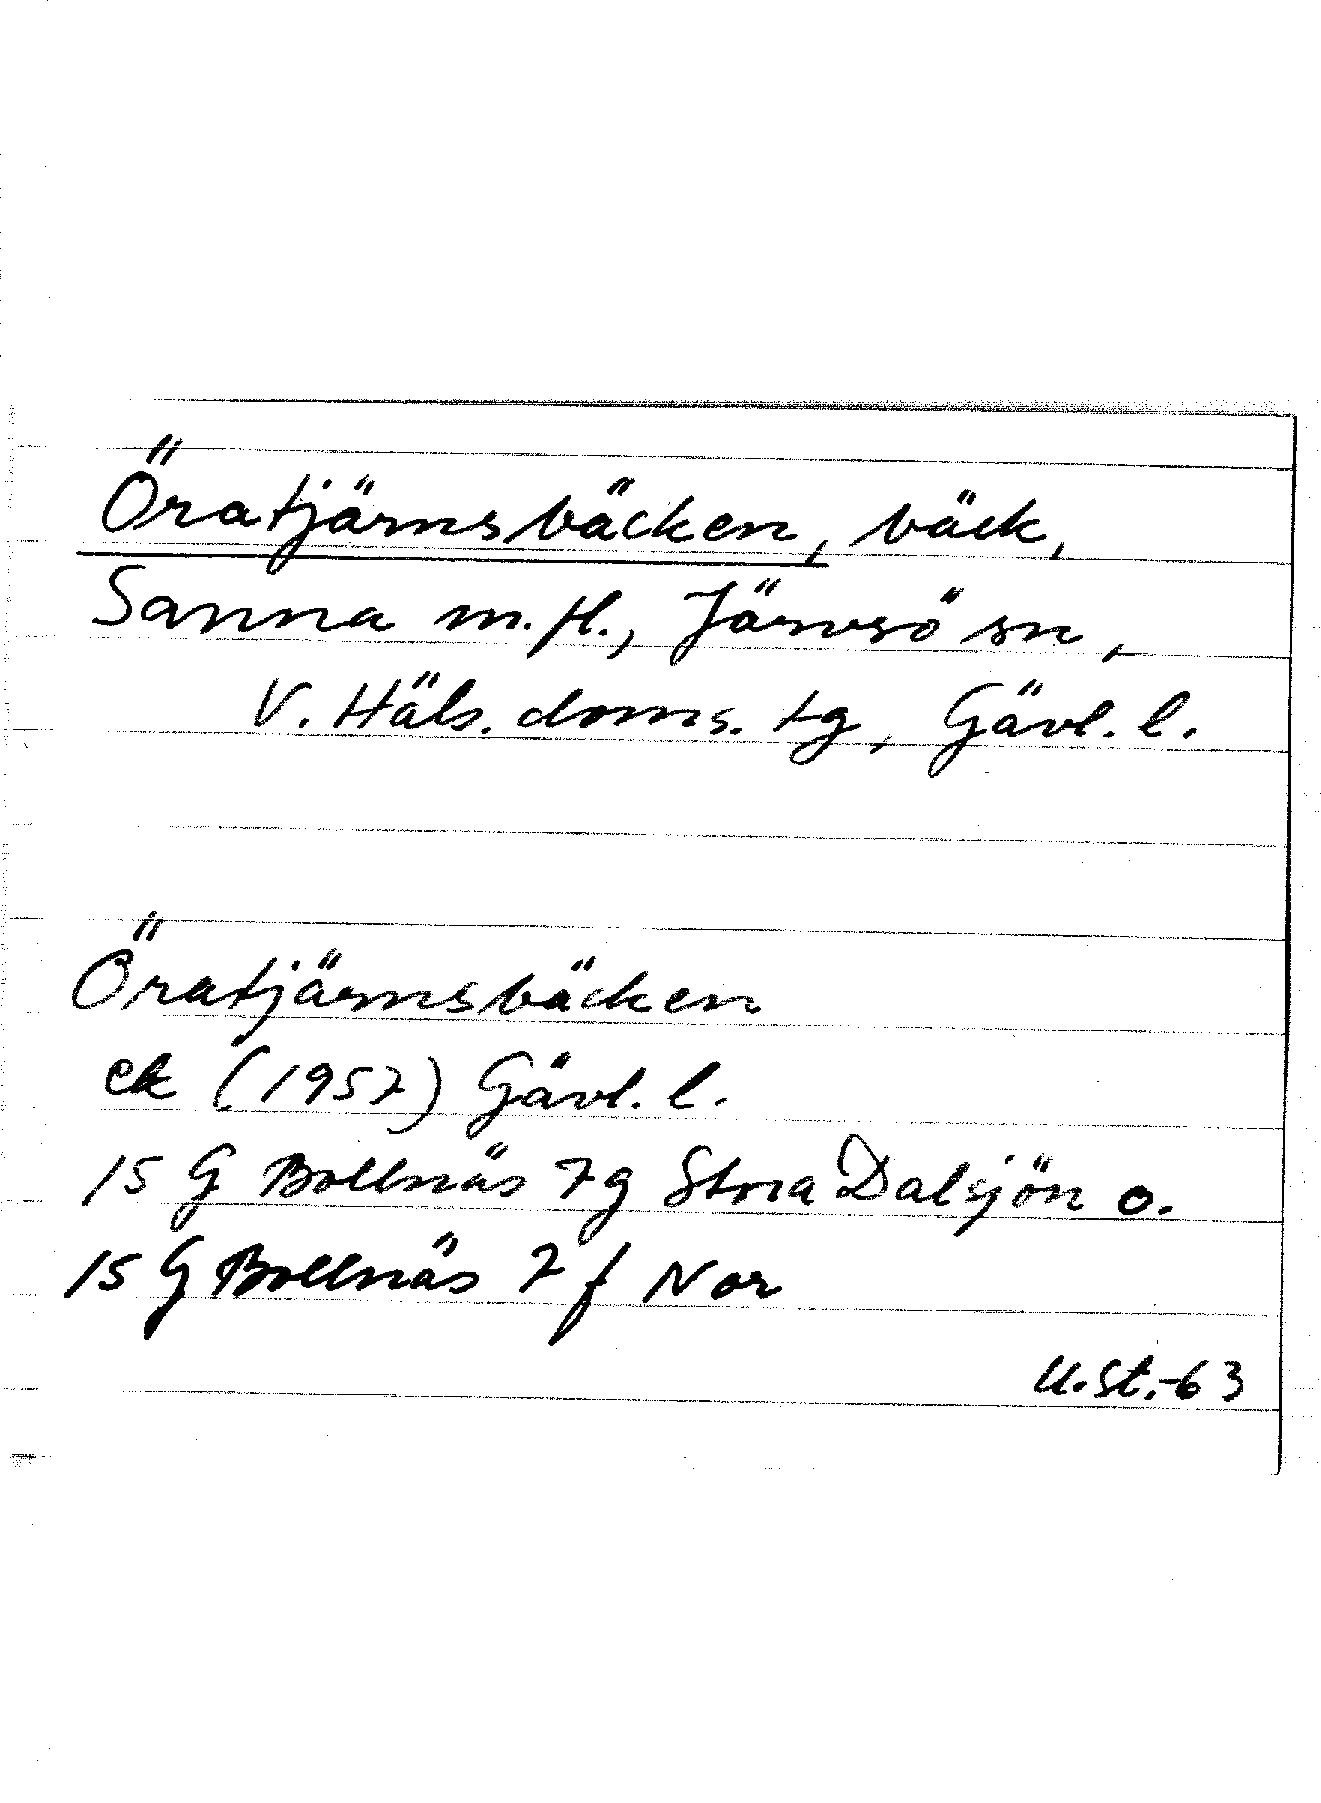 Öratjärnsbäcken, bäck,
Sanna m.fl., Järvsö sn,
V. Häls. doms. tg, Gävl. l.
Öratjärnsbäcken
ek (1957) Gävl. l.
15 G Bollnäs 7g Stora Dalsjön o.
15 G Bollnäs 7 f Nor
U.St.-63